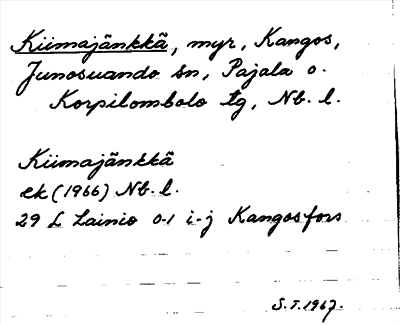 Kiimajänkkä, myr, Kangos,
Junosuando sn, Pajala o.
Korpilombolo tg, Nb. l.
Kiimajänkkä
ek (1966) Nb. l.
29 L Lainio 0-1 i-j Kangosfors
S.T. 1967.